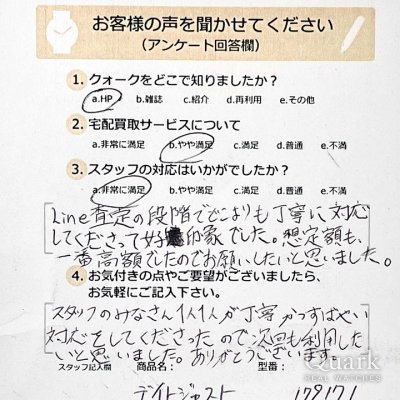 お客様の声を聞かせてください
(アンケート回答欄)
1. クォークをどこで知りましたか?
a.HP b.雑誌 c.紹介 d.再利用 e.その他
2. 宅配買取サービスについて
a.非常に満足 b.やや満足 c.満足 d.普通 e.不満
3. スタッフの対応はいかがでしたか?
a.非常に満足 b.やや満足 c.満足 d.普通 e.不満
Line査定の段階でどこよりも丁寧に対応
してくださって好印象でした。想定額も、
一番高額でしたのでお願いしたいと思いました。
4. お気付きの点やご要望がございましたら、
お気軽にご記入下さい。
スタッフのみなさん1人1人が丁寧かつすばやい
対応をしてくださったので次回も利用した
いと思いました。ありがとうございます。
スタッフ記入欄 商品名: 型番:
デイトジャスト 179171
Quark
REAL WATCHES